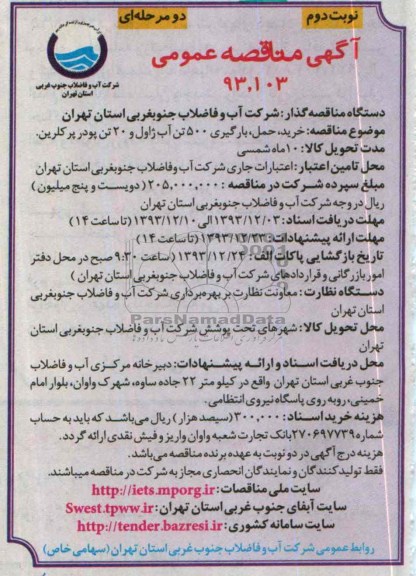 نوبت دوم
دو مرحله‌ای
شرکت آب و فاضلاب جنوب غربی
استان تهران
آگهی مناقصه عمومی
۹۳,۱۰۳
دستگاه مناقصه گذار: شرکت آب و فاضلاب جنوبغربی استان تهران
موضوع مناقصه: خرید، حمل، بارگیری ۵۰۰ تن آب ژاول و ۲۰ تن پودر پرکلرین.
مدت تحویل کالا: ۱۰ماه شمسی
محل تامین اعتبار: اعتبارات جاری شرکت آب وفاضلاب جنوبغربی استان تهران
مبلغ سپرده شرکت در مناقصه : ۲۰۵,۰۰۰,۰۰۰ (دویست و پنج میلیون )
ریال در وجه شرکت آب و فاضلاب جنوبغربی استان تهران
مهلت دریافت اسناد: ۱۳۹۳/۱۲/۰۳الی ۱۳۹۳/۱۲/۱۰ (تا ساعت ۱۴)
مهلت ارائه پیشنهادات: ۱۳۹۳/۱۲/۲۳ (تا ساعت ۱۴)
تاریخ بازگشایی پاکات الف: ۱۳۹۳/۱۲/۲۴ (ساعت ۹:۳۰ صبح در محل دفتر
امور بازرگانی و قراردادهای شرکت آب و فاضلاب جنوبغربی استان تهران )
دستگاه نظارت: معاونت نظارت بر بهره‌برداری شرکت آب و فاضلاب جنوبغربی
استان تهران
ParsNamadData
محل تحویل کالا: شهرهای تحت پوشش شرکت آب و فاضلاب جنوبغربی استان
تهران
محل دریافت اسناد و ارائه پیشنهادات: دبیرخانه مرکزی آب و فاضلاب
جنوب غربی استان تهران واقع در کیلو متر ۲۲ جاده ساوه، شهرک واوان، بلوار امام
خمینی، روبه روی پاسگاه نیروی انتظامی.
هزینه خرید اسناد: ۳۰۰,۰۰۰(سیصد هزار) ریال می‌باشد که باید به حساب
شماره ۲۷۰۶۹۷۷۳۹بانک تجارت شعبه واوان واریز و فیش نقدی ارائه گردد.
هزینه درج آگهی در دو نوبت به عهده برنده مناقصه می‌باشد.
فقط تولید کنندگان و نمایندگان انحصاری مجاز به شرکت در مناقصه میباشند.
سایت ملی مناقصات: http://iets.mporg.ir
سایت آبفای جنوب غربی استان تهران: Swest.tpww.ir
سایت سامانه کشوری: http://tender.bazresi.ir
روابط عمومی شرکت آب و فاضلاب جنوب غربی استان تهران (سهامی خاص)